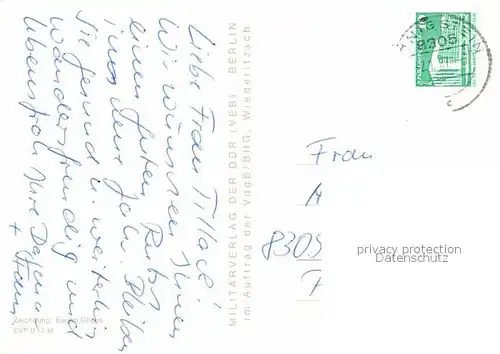 Liebe Frau Tillack!
Wir wünschen Ihnen
einen guten Rutsch
ins neue Jahr. Bleiben
Sie gesund u. weiterhin
wanderfreudig und
lebensfroh Ihre
+ Fam.
MILITÄRVERLAG DER DDR (VEB) BERLIN
im Auftrag der VdgB/BHG, Wiederitzsch
Zeichnung:
EVP 0,13 M
8305
Frau
A
8305
P
privacy protection
Datenschutz AK